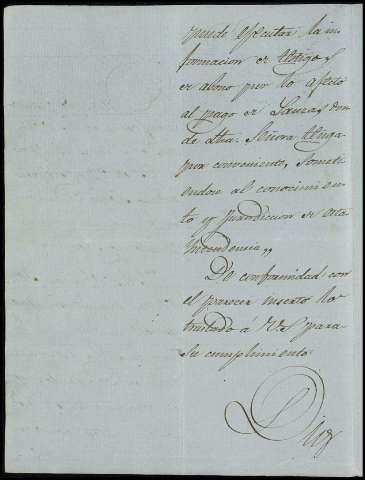 puede efectuar la in
formacion de testigos
de abono por lo afecto
al pago de Lanzas, don
de dha. Señora tenga
por conveniente, someti
endose al conocimien
to y jurisdiccion de esta
Intendencia,,
De conformidad con
el parecer inserto lo
traslado á V.S. para
su cumplimiento.